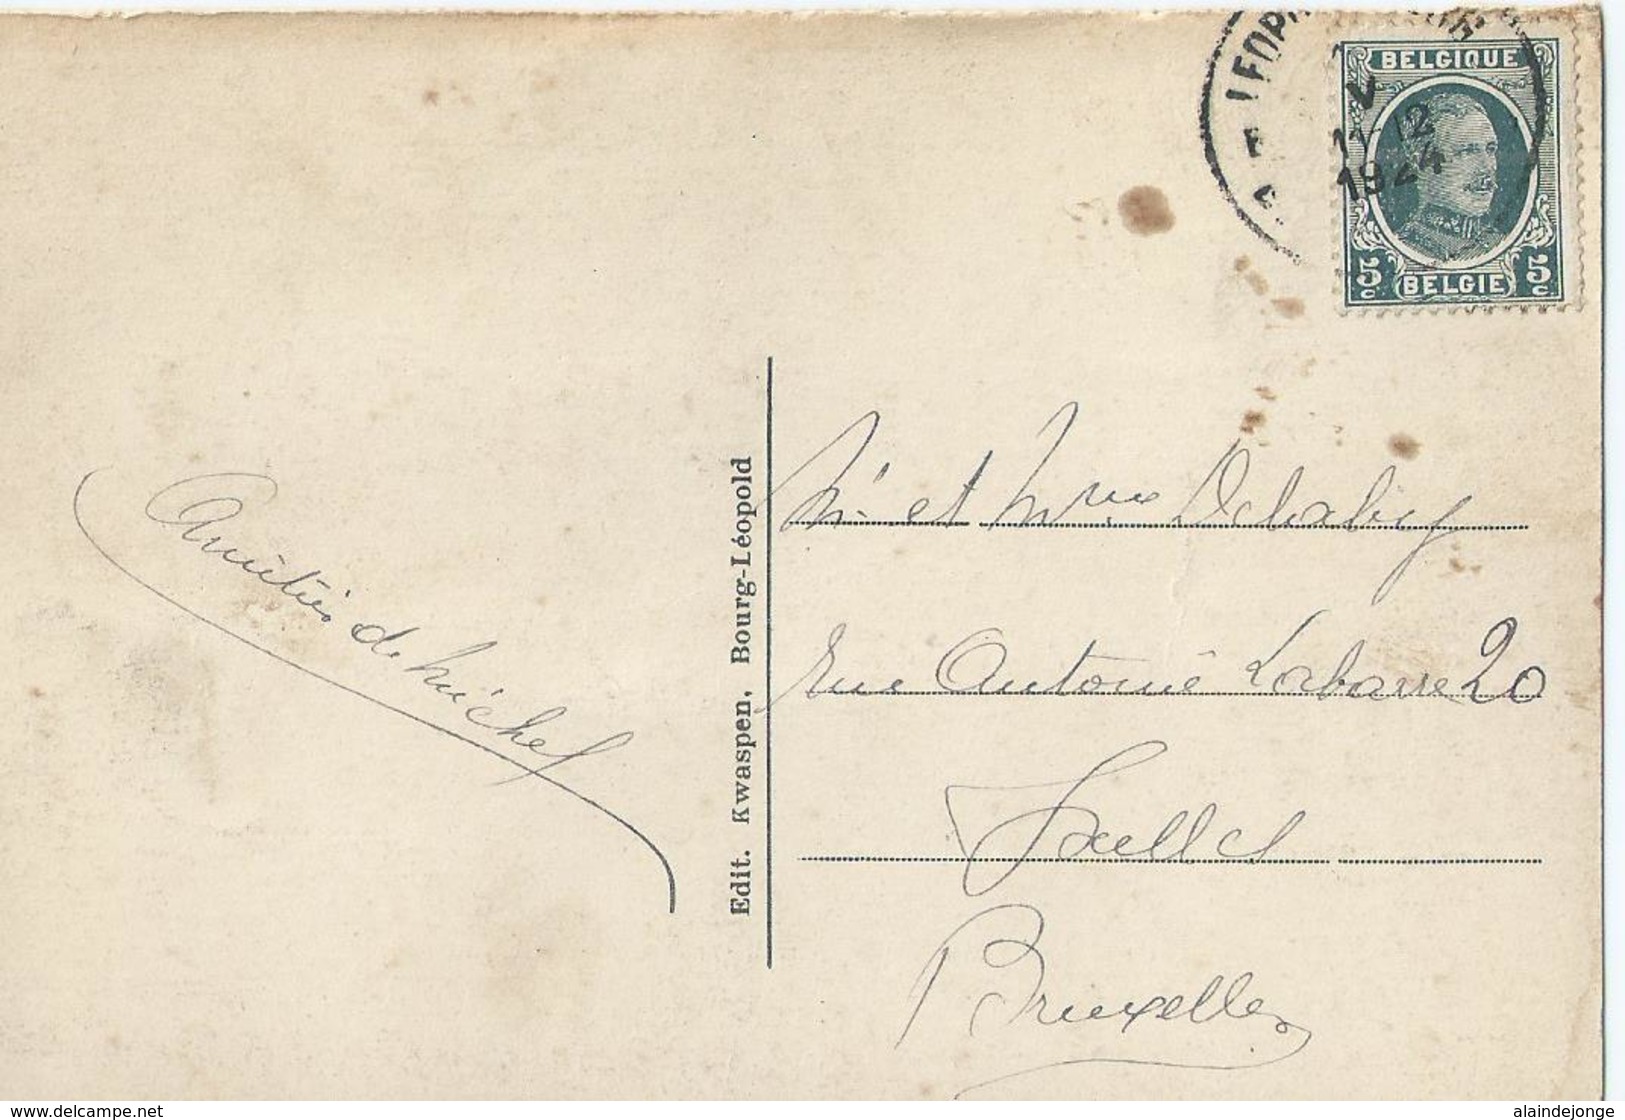 BELGIQUE
V
11-12
1924
5c BELGIE 5c
Amitiés de Michel
Edit. Kwaspen, Bourg-Léopold
Mr et Mme
Rue Antoine Labarre 20
Ixelles
Bruxelles
www.delcampe.net
alaindejonge